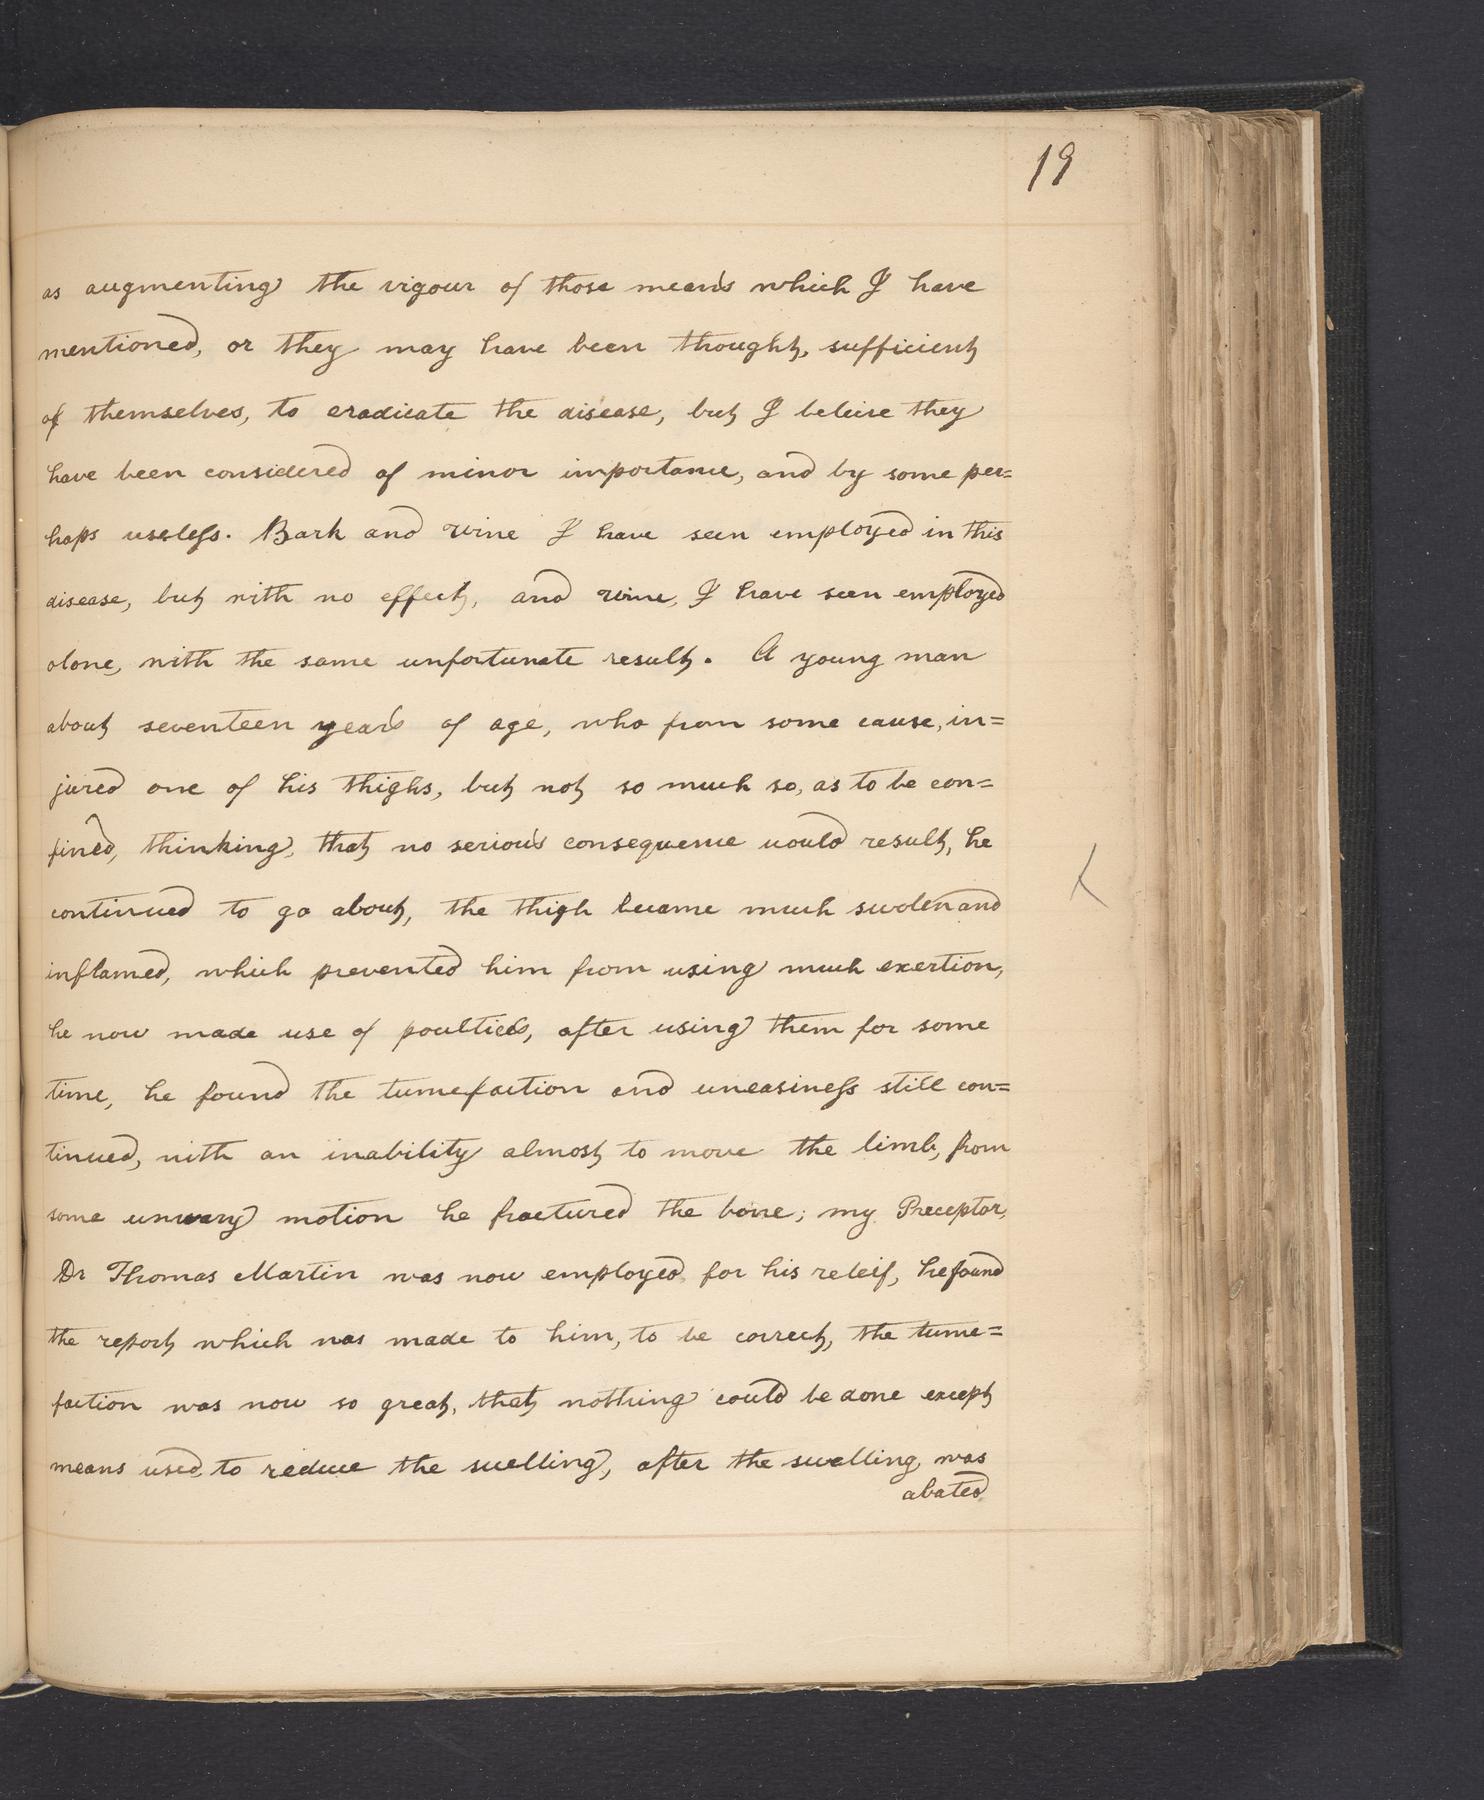 19
as augmenting the vigour of those means which I have
mentioned, or they may have been thought, sufficient
of themselves, to eradicate the disease, but I beleive they
have been considered of minor importance, and by some per=
haps useless. Bark and wine I have seen employed in this
disease, but with no effect, and wine, I have seen employed
alone, with the same unfortunate result. A young man
about seventeen years of age, who from some cause, in=
jured one of his thighs, but not so much so, as to be con=
fined, thinking, that no serious consequence would result, he
continued to go about, the thigh became much swolen and
inflamed, which prevented him from using much exertion,
he now made use of poultices, after using them for some
time, he found the tumefaction and uneasiness still con=
tinued, with an inability almost to move the limb, from
some unwary motion he fractured the bone; my Preceptor,
Dr Thomas Martin was now employed, for his releif, he found
the report which was made to him, to be correct, the tume=
faction was now so great, that nothing could be done except
means used, to reduce the swelling, after the swelling, was
abated